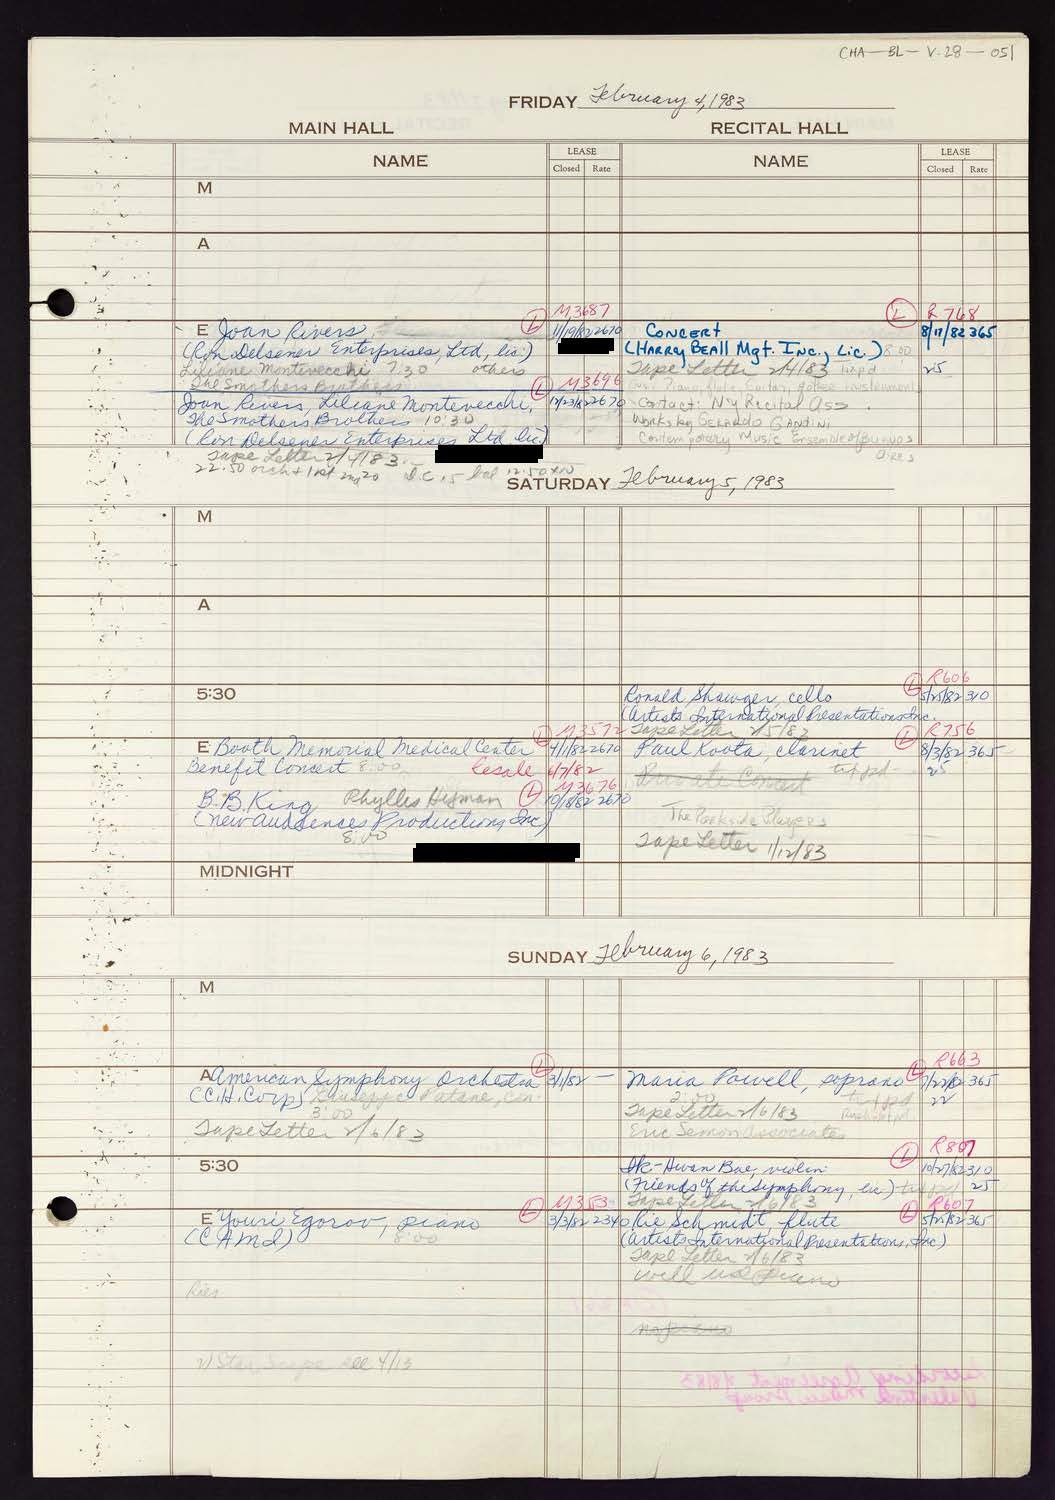 CHA-BL-V.28-051
FRIDAY February 4, 1983
MAIN HALL
RECITAL HALL
NAME
LEASE
Closed Rate
NAME
LEASE
Closed Rate
M
A
M3687
E Joan Rivers
L
11/19/82 2670
(Ron Delsener Enterprises, Ltd, lic.)
Liliane Montevecchi 7:30 others
The Smothers Brothers
L M3696
Joan Rivers, Liliane Montevecchi, 12/23/82 2670
The Smothers Brothers 10:30
(Ron Delsener Enterprises Ltd lic.)
Tape Letter 2/4/83
22.50 orch + 1st 2nd 20
L R768
Concert 8/17/82 365
(Harry Beall Mgt. Inc., Lic.) 8:00
Tape Letter 2/4/83 25
Contact: NY Recital Ass
Works by Gerardo Gandini
Contemporary Music Ensemble of Buenos
Aires
SATURDAY February 5, 1983
M
A
5:30
L R606
Ronald Shawger, cello 5/25/82 310
(Artists International Presentations Inc.
Tape Letter 2/5/83
L M3572
E Booth Memorial Medical Center 4/1/82 2670
Benefit Concert 8:00 Resale 6/7/82
L M3676
B.B. King Phyllis Hyman 10/18/82 2670
(New Audiences Productions, Inc)
8:00
L R756
Paul Roota, clarinet 8/3/82 365
Private Concert 25
The Parkside Players
Tape Letter 1/12/83
MIDNIGHT
SUNDAY February 6, 1983
M
L
A American Symphony Orchestra 3/1/82 —
(C.H. Corp) Giuseppe Patane, con.
3:00
Tape Letter 2/6/83
R663
Maria Powell, soprano L 7/22/82 365
2:00 22
Tape Letter 2/6/83
Eric Semon Associates
5:30
L R807
Ik-Hwan Bae, violin 10/27/82 310
(Friends of the Symphony, lic) 25
Tape Letter 2/6/83
L M353
E Youri Egorov, piano 3/3/82 2340
(CAMI) 8:00
L R607
Rie Schmidt, flute 5/25/82 365
(Artists International Presentations, Inc)
Tape Letter 2/6/83
will use piano
no piano
see 4/13